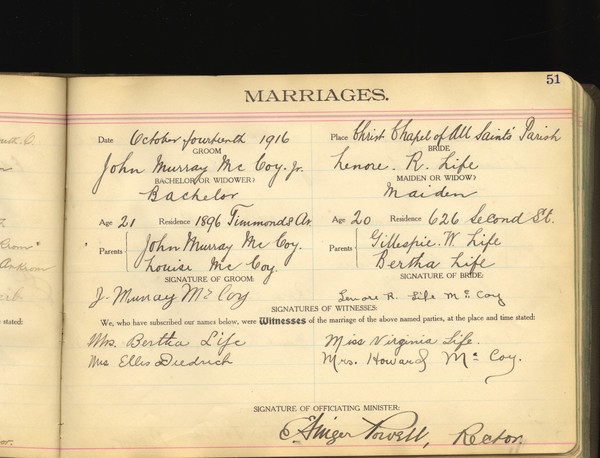 51
MARRIAGES.
Date October fourteenth 1916 Place Christ Chapel of All Saints' Parish
GROOM BRIDE
John Murray Mc Coy. Jr. Lenore. R. Life
BACHELOR (OR WIDOWER) MAIDEN OR WIDOW)
Bachelor Maiden
Age 21 Residence 1896 Timmonds Av. Age 20 Residence 626 Second St.
Parents John Murray Mc Coy. Parents Gillespie. W. Life
Louise Mc Coy. Bertha Life
SIGNATURE OF GROOM: SIGNATURE OF BRIDE:
J. Murray Mc Coy Lenore R. Life Mc Coy
SIGNATURES OF WITNESSES:
e stated: We, who have subscribed our names below, were Witnesses of the marriage of the above named parties, at the place and time stated:
Mrs. Bertha Life Miss Virginia Life.
Mrs Ellis Diedrich Mrs. Howard Mc Coy.
SIGNATURE OF OFFICIATING MINISTER:
Powell, Rector.